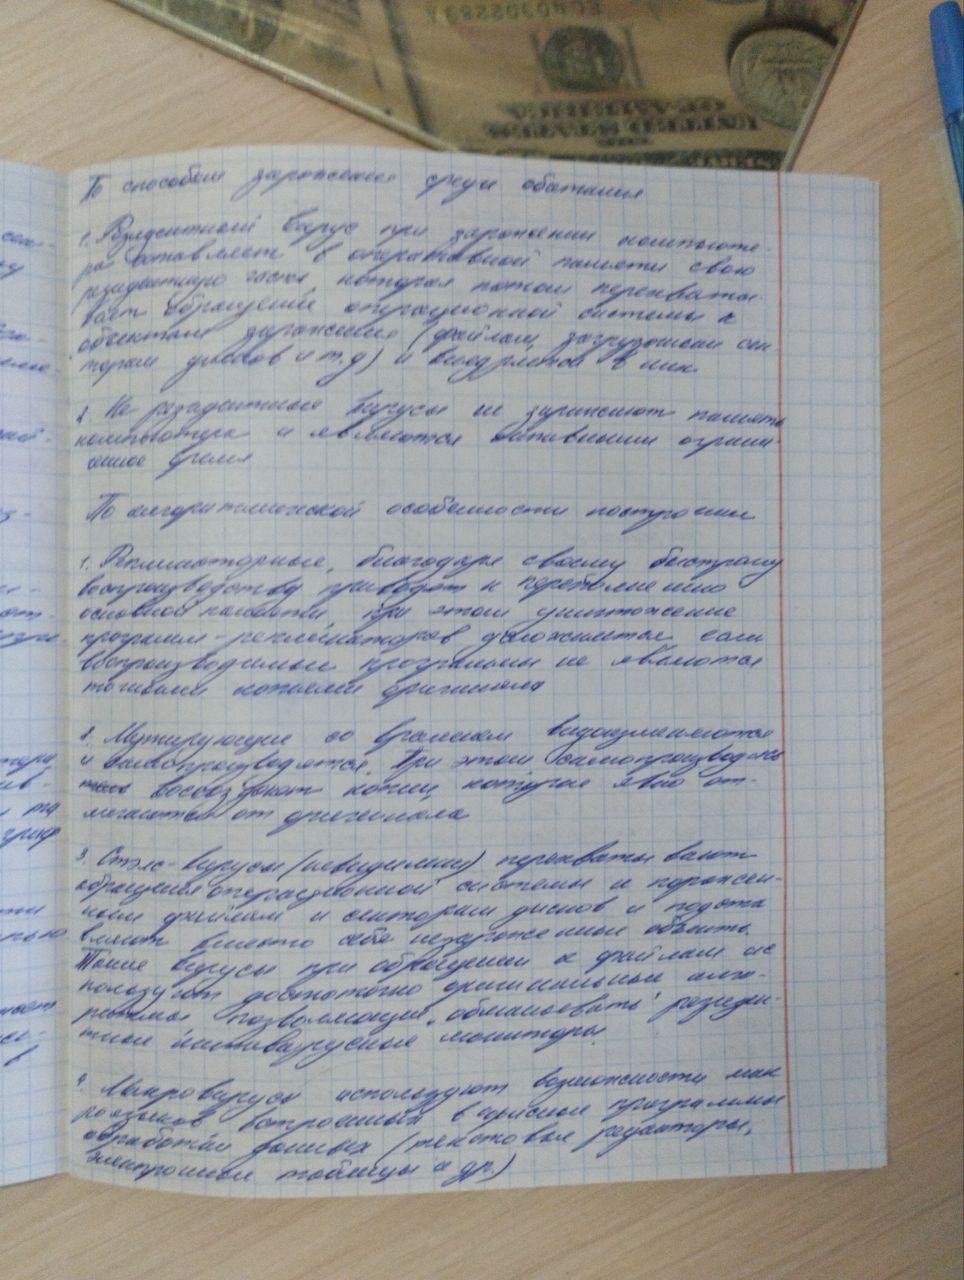 EL40302283
THE
UNITED STATES
OF AMERICA
По способам заражения среды обитания
1. Резидентный вирус при заражении компьюте-
ра оставляет в оперативной памяти свою
резидентную часть которая потом перехваты-
вает обращения операционной системы к
объектам заражения (файлам, загрузочным сек-
торам дисков и т.д) и внедряется в них.
2. Не резидентные вирусы не заражают память
компьютера и являются активными ограни
ченное время
По алгоритмической особенности построения
1. Репликаторные, благодаря своему быстрому
воспроизводству приводят к переполнению
основной памяти, при этом уничтожение
программ-репликаторов усложняется если
воспроизводимые программы не являются
точными копиями оригинала
2. Мутирующие со временем видоизменяются
и самопроизводятся. При этом самопроизводясь
воссоздают копии, которые явно от-
личаются от оригинала
3. Стэлс-вирусы (невидимки) перехватывают
обращения операционной системы к поражен-
ным файлам и секторам дисков и подста
вляют вместо себя незараженные объекты
Такие вирусы при обращении к файлам ис
пользуют достаточно оригинальные алго-
ритмы позволяющие "обманывать" резиден-
тные антивирусные мониторы.
4. Макровирусы используют возможности мак
роязыков встроенных в офисные программы
обработки данных (текстовые редакторы,
электронные таблицы и др.)